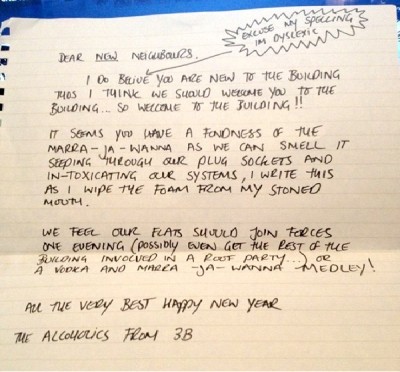 EXCUSE MY SPELLING
IM DYSLEXIC
DEAR NEW NEIGHBOURS.
I DO BELIVE YOU ARE NEW TO THE BUILDING
THUS I THINK WE SHOULD WELCOME YOU TO THE
BUILDING... SO WELCOME TO THE BUILDING!!
IT SEEMS YOU HAVE A FONDNESS OF THE
MARRA-JA-WANNA AS WE CAN SMELL IT
SEEPING THROUGH OUR PLUG SOCKETS AND
IN-TOXICATING OUR SYSTEMS, I WRITE THIS
AS I WIPE THE FOAM FROM MY STONED
MOUTH.
WE FEEL OUR FLATS SHOULD JOIN FORCES
ONE EVENING (POSSIBLY EVEN GET THE REST OF THE
BUILDING INVOLVED IN A ROOF PARTY...) OR
A VODKA AND MARRA-JA-WANNA MEDLEY!
ALL THE VERY BEST HAPPY NEW YEAR
THE ALCOHOLICS FROM 3B